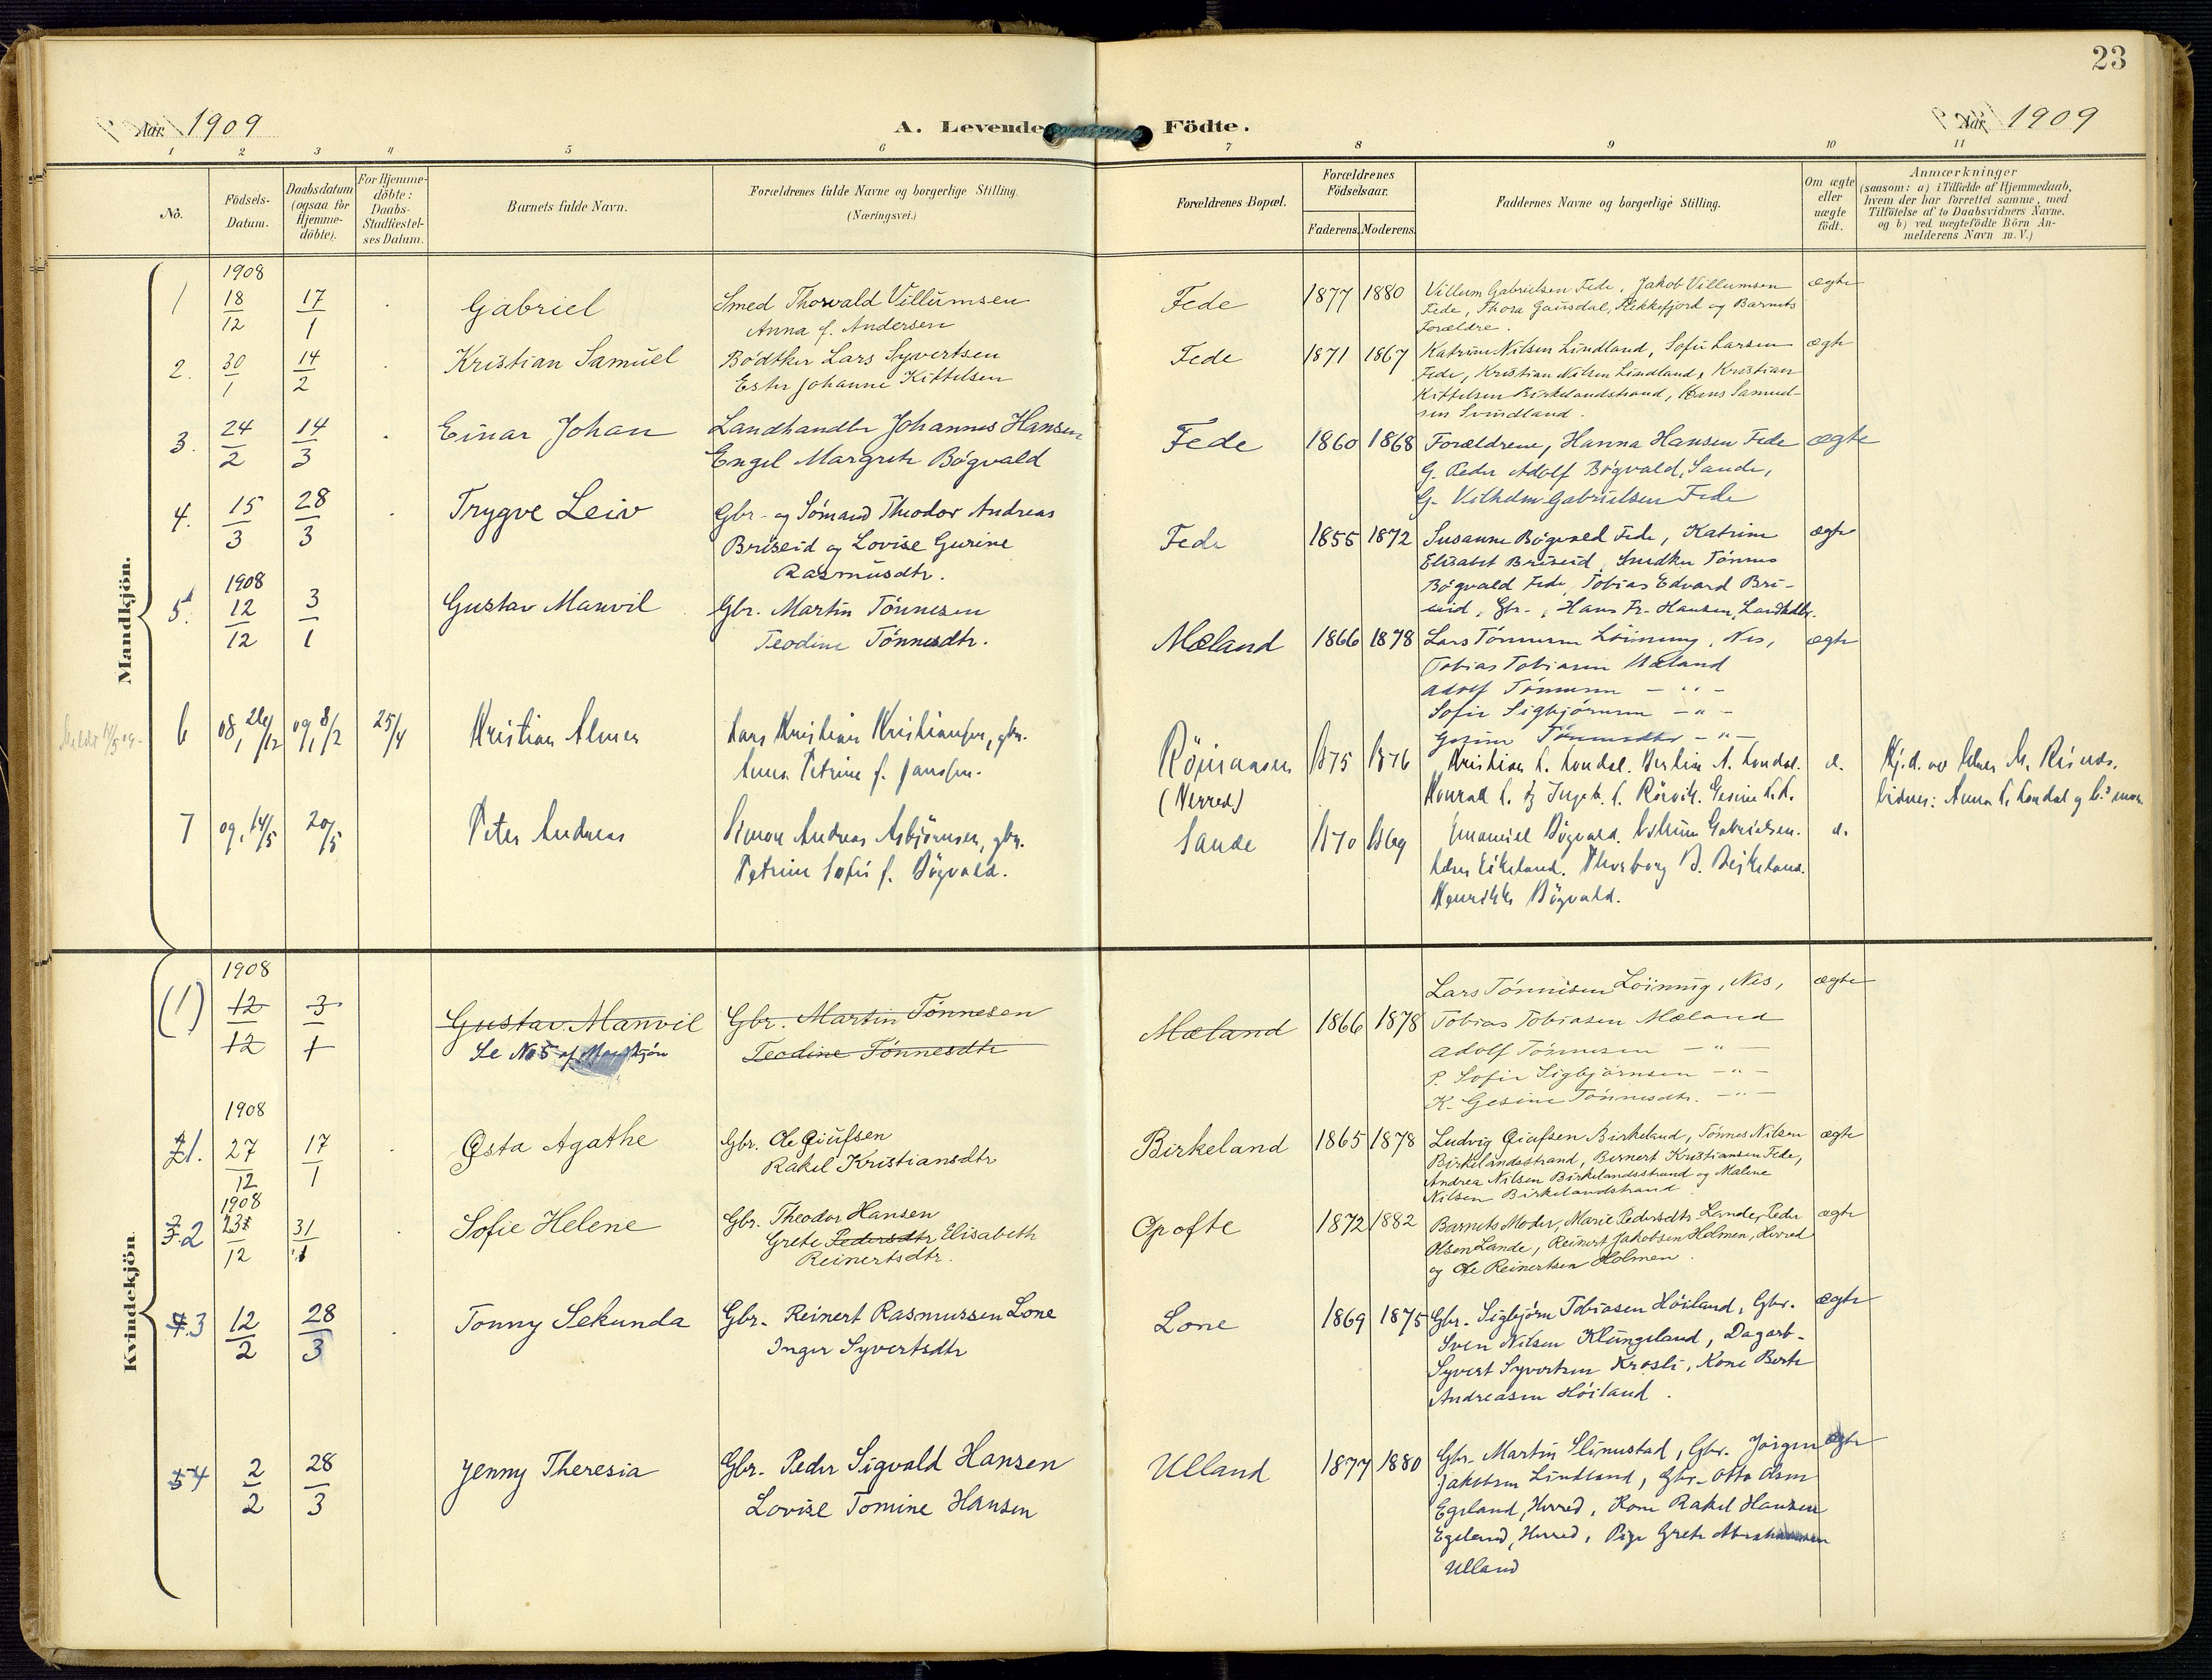 23
Aar 1909
A. Levende Födte.
Aar 1909
1 2 3 4 5 6 7 8 9 10 11
No.
Födsels-Datum.
Daabsdatum (ogsaa for Hjemme-döbte).
For Hjemme-döbte: Daabs-Stadfæstel-ses Datum.
Barnets fulde Navn.
Forældrenes fulde Navne og borgerlige Stilling.
(Næringsvei.)
Forældrenes Bopæl.
Forældrenes Födselsaar.
Faderens. Moderens.
Faddernes Navne og borgerlige Stilling.
Om ægte eller uægte födt.
Anmærkninger
(saasom: a) i Tilfælde af Hjemmedaab,
hvem der har forrettet samme, med
Tilföielse af to Daabsvidners Navne.
og b) ved uægtefödte Börn An-
melderens Navn m. V.)
Mandkjön.
1 1908 18/12 17/1 Gabriel Smed Thorvald Villumsen Fede 1877 1880 Villum Gabrielsen Fede, Jakob Villumsen ægte
Anna f. Andersen Fede, Thora Gausdal, Flekkefjord og Barnets
Forældre.
2. 30/1 14/2 Kristian Samuel Bödtker Lars Syvertsen Fede 1871 1867 Katrine Nilsen Lindland, Sofie Larsen ægte
Ester Johanne Kittelsen Fede, Kristian Nilsen Lindland, Kristian
Kittelsen Birkelandstrand, Hans Samuel-
sen Svindland.
3. 24/2 14/3 Einar Johan Landhandler Johannes Hansen Fede 1860 1868 Forældrene, Hanna Hansen Fede ægte
Engel Margrete Bögvald G. Peder Adolf Bögvald, Sande,
G. Vilhelm Gabrielsen Fede
4. 15/3 28/3 Trygve Leiv Gbr. og Sömand Theodor Andreas Fede 1855 1872 Susanne Bögvald Fede, Katrine ægte
Briseid og Lovise Gurine Elisabet Briseid, Snedker Tönnes
Rasmusdtr. Bögvald Fede, Tobias Edvard Bri-
seid, Gbr., Hans Fr. Hansen, Landhdlr.
5. 1908 12/12 3/1 Gustav Manvil Gbr. Martin Tönnesen Mæland 1866 1878 Lars Tönnesen Löinnig, Nes, ægte
Teodine Tönnesdtr. Tobias Tobiasen Mæland
Adolf Tönnesen — " —
Sofie Sigbjörnsen — " —
Gesine Tönnesdtr — " —
6 08, 26/12 09, 8/2 25/4 Kristian Almer Lars Kristian Kristiansen, gbr. 1875 1876 Kristian L. Londal.
Anna Petrine f. Jansen. (Herred)
7 09, 14/5 20/5 Peter Andreas Simon Andreas Asbjörnsen, gbr. Sande 1870 1869 Emanuel Bögvald. Gabrielsen.
Petrine Sofie f. Bögvald. Eikeland. Thorborg
Henrikke Bögvald.
Kvindekjön.
(1) 1908 12/12 3/1 Gustav Manvil Gbr. Martin Tönnesen Mæland 1866 1878 Lars Tönnesen Löinnig, Nes, ægte
Se No 5 af Mandkjön Teodine Tönnesdtr Tobias Tobiasen Mæland
Adolf Tönnesen — " —
P. Sofie Sigbjörnsen — " —
K. Gesine Tönnesdtr. — " —
2 1. 1908 27/12 17/1 Østa Agathe Gbr. Ole Birkeland 1865 1878 Ludvig Birkeland, Tönnes Nilsen ægte
Rakel Kristiansdtr Birkelandsstrand, Bernert Kristiansen Fede,
Andrea Nilsen Birkelandsstrand og Malene
Nilsen Birkelandstrand
3. 2 1908 23/12 31/1 Sofie Helene Gbr. Theodor Hansen Opofte 1872 1882 Barnets Moder, Marie Pedersdtr Lande, Peder ægte
Grete Pedersdtr Elisabeth Olsen Lande, Reinert Jakobsen Holmen, Herred
Reinertsdtr. og Ole Reinertsen Holmen.
4. 3 12/2 28/3 Tonny Sekunda Gbr. Reinert Rasmussen Lone Lone 1869 1875 Gbr. Sigbjörn Tobiasen Höiland, Gbr. ægte
Inger Syvertsdtr Sven Nilsen Klungeland, Dagarb.
Syvert Syvertsen Krosli, Kone Berte
Andreasen Höiland.
5 4 2/2 28/3 Jenny Theresia Gbr. Peder Sigvald Hansen Ulland 1877 1880 Gbr. Martin Slimestad, Gbr. Jörgen ægte
Lovise Tomine Hansen Jakobsen Lindland, Gbr. Otto Olsen
Egeland, Herred, Kone Rakel Hansen
Egeland, Herred, Pige Grete Abrahamsen
Ulland